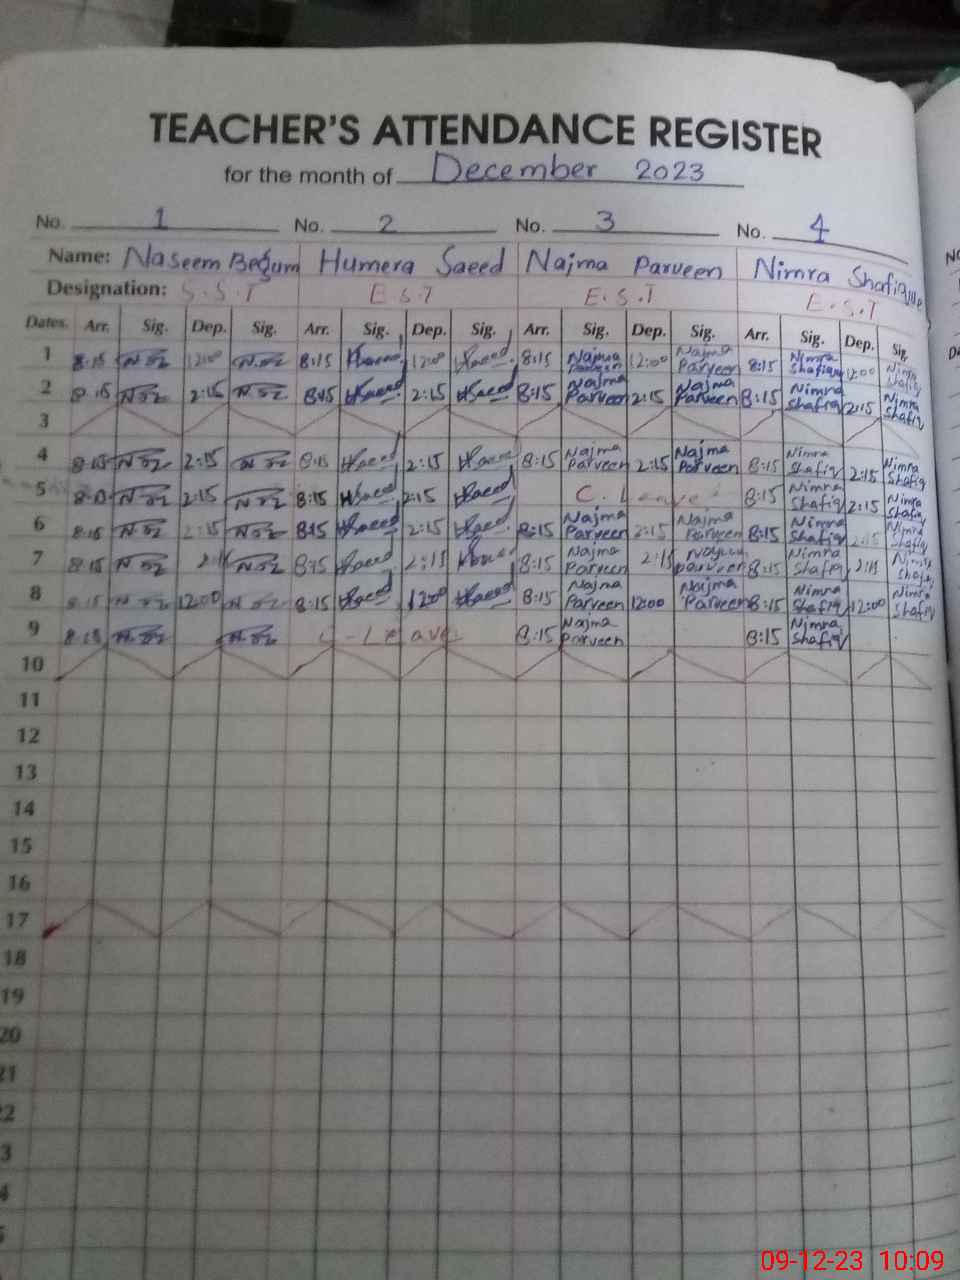 TEACHER'S ATTENDANCE REGISTER
for the month of December 2023
No. 1 No. 2 No. 3 No. 4
Name: Naseem Begum Humera Saeed Najma Parveen Nimra Shafique
Designation: S.S.T E.S.T E.S.T E.S.T
Dates. Arr. Sig. Dep. Sig. Arr. Sig. Dep. Sig. Arr. Sig. Dep. Sig. Arr. Sig. Dep. Sig.
1 8:15 12:00 8:15 12:00 Saeed 8:15 Najma Parveen 12:00 Najma Parveen 8:15 Nimra Shafique 12:00 Nimra Shafiq
2 8:15 2:15 8:15 HSaeed 2:15 HSaeed 8:15 Najma Parveen 2:15 Najma Parveen 8:15 Nimra Shafiq 2:15 Nimra Shafiq
3
4 8:15 2:15 8:15 HSaeed 2:15 HSaeed 8:15 Najma Parveen 2:15 Najma Parveen 8:15 Nimra Shafiq 2:15 Nimra Shafiq
5 2:15 8:15 HSaeed 2:15 HSaeed C. Leave 8:15 Nimra Shafiq 2:15 Nimra Shafiq
6 8:15 2:15 8:15 HSaeed 2:15 HSaeed 8:15 Najma Parveen 2:15 Najma Parveen 8:15 Nimra Shafiq 2:15 Nimra Shafiq
7 8:15 2:15 8:15 HSaeed 2:15 8:15 Najma Parveen 2:15 8:15 Nimra Shafiq 2:15 Nimra
8 8:15 12:00 8:15 HSaeed 12:00 HSaeed 8:15 Najma Parveen 12:00 Najma Parveen 8:15 Nimra Shafiq 12:00 Nimra Shafiq
9 8:15 C-Leave 8:15 Najma Parveen 8:15 Nimra Shafiq
10
11
12
13
14
15
16
17
18
19
20
21
09-12-23 10:09